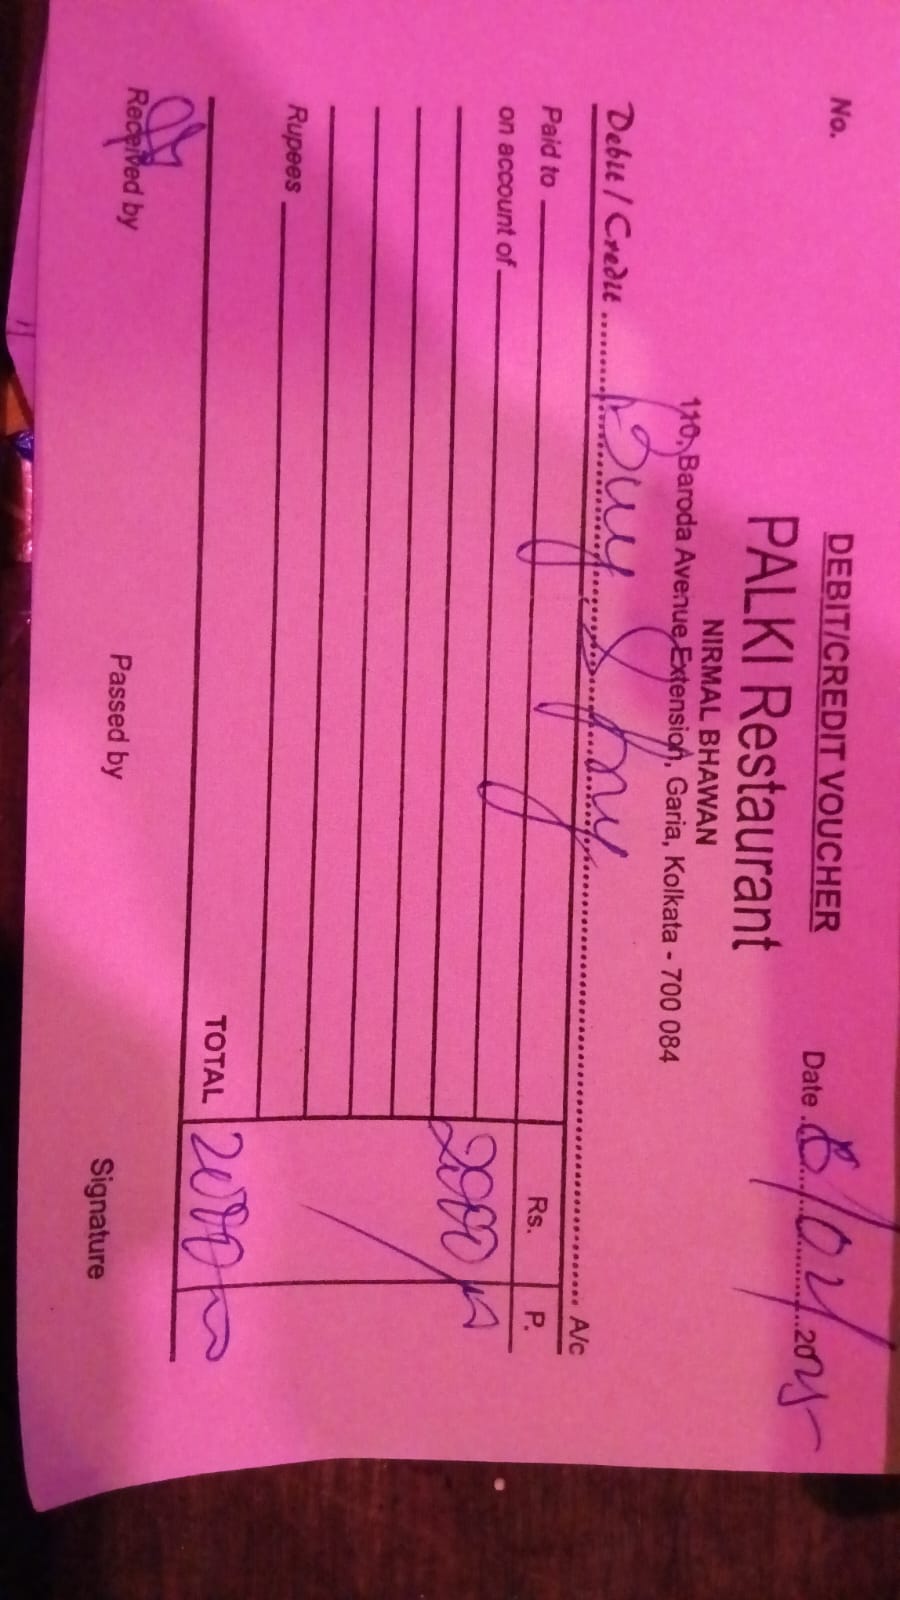 No.
DEBIT/CREDIT VOUCHER
Date 8/04/2025
PALKI Restaurant
NIRMAL BHAWAN
110, Baroda Avenue Extension, Garia, Kolkata - 700 084
Debit / Credit A/c
Paid to Rs. P.
on account of
2000/-
Rupees
TOTAL 2000/-
Received by Passed by Signature